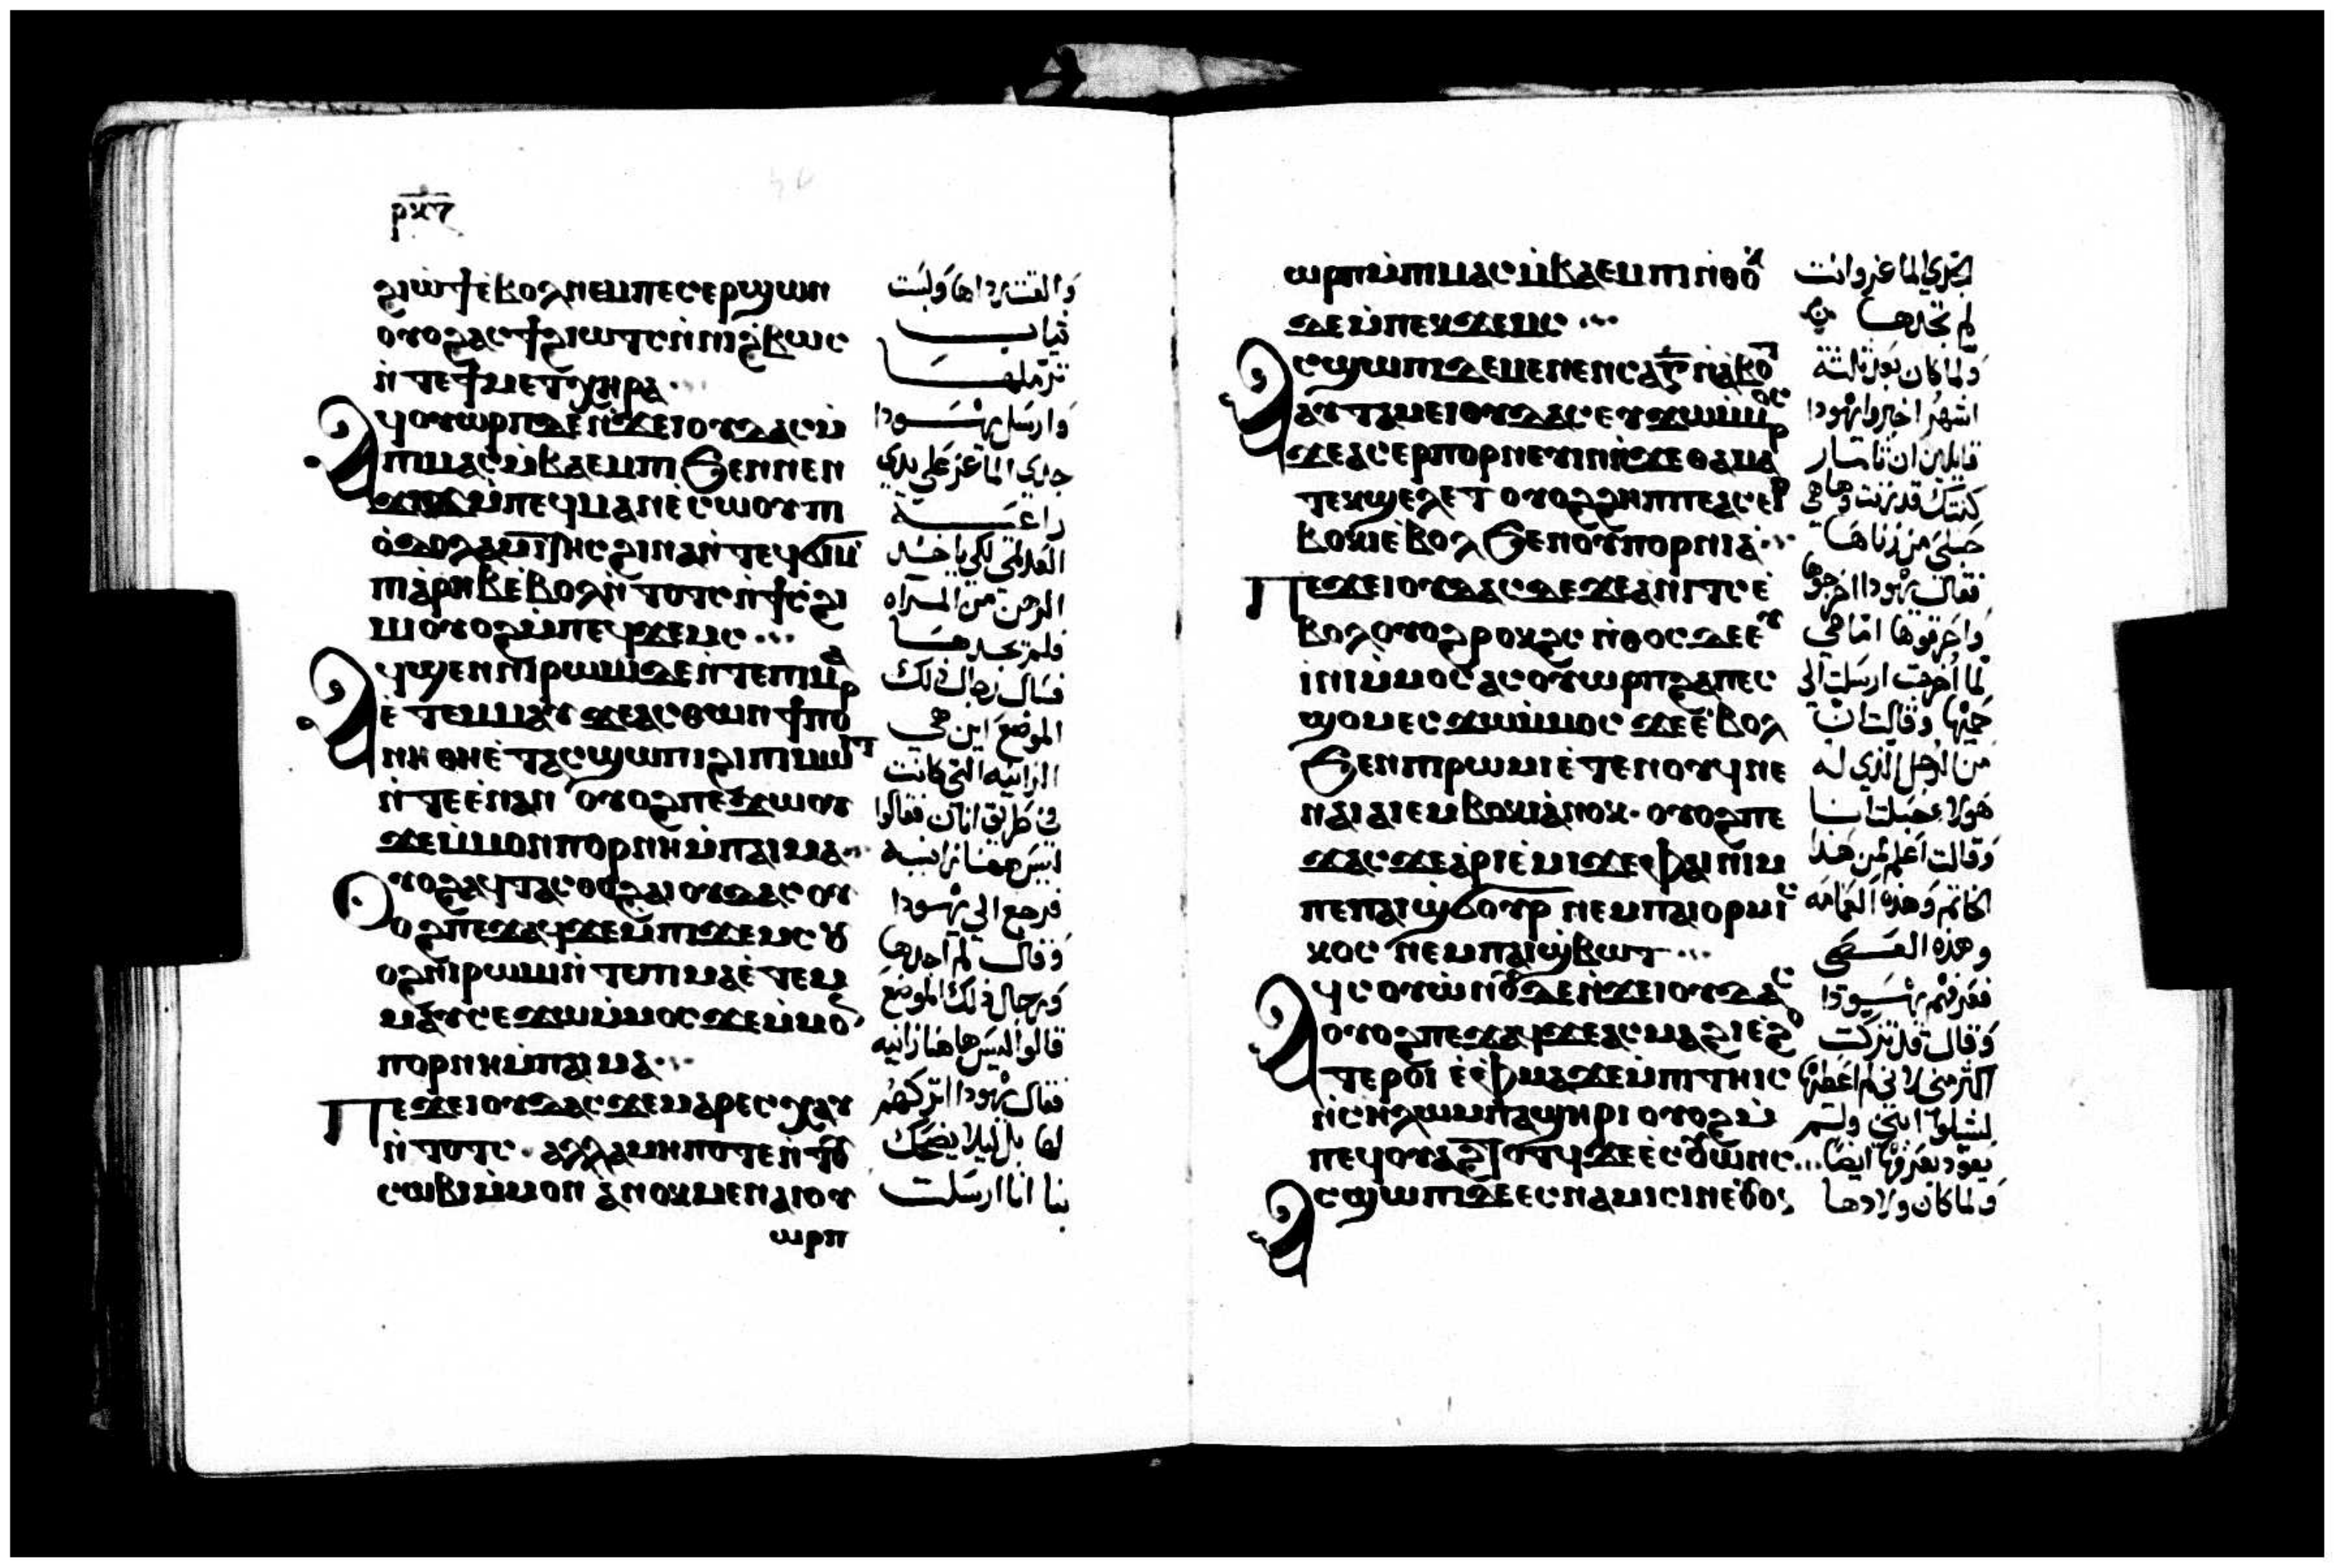 ⲣⲕⲅ
ϩⲓⲱϯ ⲉⲃⲟⲗ ⲛⲉⲙ ⲡⲉⲥⲉⲣϣⲱⲛ
ⲟⲩⲟϩ ⲁⲥϯ ϩⲓⲱⲧⲥ ⲛ̀ⲛⲓϩ̀ⲃⲱⲥ
ⲛ̀ⲧⲉ ϯⲙⲉⲧⲭⲏⲣⲁ
ⲁϥⲟⲩⲱⲣⲡ ⲇⲉ ⲛ̀ϫⲉ ⲓⲟⲩⲇⲁⲥ ⲙ̀
ⲡⲓⲙⲁⲥ ⲙ̀ⲃⲁⲉⲙⲡⲓ ϧⲉⲛ ⲛⲉⲛ
ϫⲓϫ ⲙ̀ⲡⲉϥⲙⲁⲛⲉ̀ⲥⲱⲟⲩ ⲡⲓ
ⲟ̀ⲇⲟⲗⲗⲁⲙⲓⲧⲏⲥ ϩⲓⲛⲁ ⲛ̀ⲧⲉϥϭⲓ ⲙ̀
ⲡⲓⲁ̀ⲣⲏⲃ ⲉ̀ⲃⲟⲗ ⲛ̀ⲧⲟⲧⲥ ⲛ̀ϯⲥ̀ϩⲓ
ⲙⲓ ⲟⲩⲟϩ ⲙ̀ⲡⲉϥϫⲉⲙⲥ
ⲁϥϣⲉⲛ ⲛⲓⲣⲱⲙⲓ ⲇⲉ ⲛ̀ⲧⲉ ⲡⲓⲙⲁ
ⲉ̀ⲧⲉⲙⲙⲁⲩ ϫⲉ ⲁⲥⲑⲱⲛ ϯⲡⲟⲣ
ⲛⲏ ⲑⲏ ⲉ̀ⲧⲁⲥϣⲱⲡⲓ ϩⲓ ⲡⲓⲙⲱⲓⲧ
ⲛ̀ⲧⲉ ⲉ̀ⲛⲁⲛ ⲟⲩⲟϩ ⲡⲉϫⲱⲟⲩ
ϫⲉ ⲙ̀ⲙⲟⲛ ⲡⲟⲣⲛⲏ ⲙ̀ⲡⲁⲓⲙⲁ
ⲟⲩⲟϩ ⲁϥⲧⲁⲥⲑⲟ ϩⲁ ⲓⲟⲩⲇⲁⲥ ⲟⲩ
ⲟϩ ⲡⲉϫⲁϥ ϫⲉ ⲙ̀ⲡⲓϫⲉⲙⲥ ⲟⲩ
ⲟϩ ⲛⲓⲣⲱⲙⲓ ⲛ̀ⲧⲉ ⲡⲓⲙⲁ ⲉ̀ⲧⲉⲙ
ⲙⲁⲩ ⲥⲉϫⲱ ⲙ̀ⲙⲟⲥ ϫⲉ ⲙ̀ⲙⲟⲛ
ⲡⲟⲣⲛⲏ ⲙ̀ⲡⲁⲓⲙⲁ
ⲡⲉϫⲉ ⲓⲟⲩⲇⲁⲥ ϫⲉ ⲙⲁⲣⲉⲥⲭⲁⲩ
ⲛ̀ⲧⲟⲧⲥ ⲁⲗⲗⲁ ⲙⲏⲡⲟⲧⲉ ⲛ̀ⲧⲟⲩ
ⲥⲱⲃⲓ ⲙ̀ⲙⲟⲛ ⲁ̀ⲛⲟⲕ ⲙⲉⲛ ⲁⲓⲟⲩ
ⲱⲣⲡ
والقت رداها ولبست
ثياب
ترملها
وارسل يهودا
جدي الماعز على يدي
راعيه
العدلامي لكي ياخذ
الرهن من المراه
فلم يجدها
فسال رجال ذلك
الموضع اين هي
الزانيه التي كانت
في طريق اانان فقالوا
ليس ههنا زانيه
فرجع الي يهودا
وقال لم اجدها
ورجال ذلك الموضع
قالوا ليس هاهنا زانيه
فقال يهودا اتركهم
لها بل ليلا يضحك
بنا انا ارسلت
ⲱⲣⲡ ⲙ̀ⲡⲓⲙⲁⲥ ⲙ̀ⲃⲁⲉⲙⲡⲓ ⲛ̀ⲑⲟⲕ
ⲇⲉ ⲙ̀ⲡⲉⲕϫⲉⲙⲥ
ⲁⲥϣⲱⲡⲓ ⲇⲉ ⲙⲉⲛⲉⲛⲥⲁ ⲅ̅ ⲛ̀ⲁ̀ⲃⲟⲧ
ⲁⲩⲧⲁⲙⲉ ⲓⲟⲩⲇⲁⲥ ⲉⲩϫⲱ ⲙ̀ⲙⲟⲥ
ϫⲉ ⲁⲥⲉⲣⲡⲟⲣⲛⲉⲩⲓⲛ ⲛ̀ϫⲉ ⲑⲁⲙⲁⲣ
ⲧⲉⲕϣⲉⲗⲉⲧ ⲟⲩⲟϩ ϩⲏⲡⲡⲉ ⲁⲥⲉⲣ
ⲃⲟⲕⲓ ⲉ̀ⲃⲟⲗ ϧⲉⲛ ⲟⲩⲡⲟⲣⲛⲓⲁ
ⲡⲉϫⲉ ⲓⲟⲩⲇⲁⲥ ⲇⲉ ϫⲉ ⲁ̀ⲛⲓⲧⲥ ⲉ̀
ⲃⲟⲗ ⲟⲩⲟϩ ⲣⲟⲕϩⲥ ⲛ̀ⲑⲟⲥ ⲇⲉ ⲉⲩ
ⲓⲛⲓ ⲙ̀ⲙⲟⲥ ⲁⲥⲟⲩⲱⲣⲡ ϩⲁ ⲡⲉⲥ
ϣⲟⲙ ⲉⲥϫⲱ ⲙ̀ⲙⲟⲥ ϫⲉ ⲉ̀ⲃⲟⲗ
ϧⲉⲛ ⲡⲓⲣⲱⲙⲓ ⲉ̀ⲧⲉⲛⲟⲩϥ ⲛⲉ
ⲛⲁⲓ ⲁⲓⲉⲙⲃⲟⲕⲓ ⲁ̀ⲛⲟⲕ ⲟⲩⲟϩ ⲡⲉ
ϫⲁⲥ ϫⲉ ⲁ̀ⲣⲓⲉ̀ⲙⲓ ϫⲉ ⲫⲁ ⲛⲓⲙ
ⲡⲉ ⲡⲁⲓϣ̀ϭⲟⲩⲣ ⲛⲉⲙ ⲡⲁⲓⲟⲣⲙⲓⲥ
ⲕⲟⲥ ⲛⲉⲙ ⲡⲁⲓϣ̀ⲃⲱⲧ
ⲁϥⲥⲟⲩⲱ̀ⲛⲟⲩ ⲇⲉ ⲛ̀ϫⲉ ⲓⲟⲩⲇⲁⲥ
ⲟⲩⲟϩ ⲡⲉϫⲁϥ ϫⲉ ⲁⲥⲙⲁϩⲓ ⲉ̀ϩⲟ
ⲧⲉⲣⲟⲓ ⲉ̀ⲫⲙⲁ ϫⲉ ⲙ̀ⲡⲓⲧⲏⲓⲥ
ⲛ̀ⲥⲏⲗⲱⲙ ⲡⲁϣⲏⲣⲓ ⲟⲩⲟϩ ⲙ̀
ⲡⲉϥⲟⲩⲁϩⲧⲟⲧϥ ϫⲉ ⲉ̀ⲥⲟⲩⲱⲛⲥ
ⲁⲥϣⲱⲡⲓ ⲇⲉ ⲉⲥⲛⲁⲙⲓⲥⲓ ⲛⲉ ⲟⲩⲟϩ
بجدي الماعز وانت
لم تجدها
ولما كان بعد ثلثة
اشهر اخبروا يهودا
قايلين ان ثامار
كنتك قد زنت وها هي
حبلى من زناها
فقال يهودا اخرجوها
واحرقوها اما هي
لما اخرجت ارسلت الي
حميها وقالت ان
من الرجل الذي له
هولاء حبلت انا
وقالت اعلم لمن هذا
الخاتم وهذه العمامه
وهذه العصى
فعرفهم يهودا
وقال قد تزكت
اكثر مني لاني لم اعطيها
لشيلوم ابني ولم
يعود يعرفها ايضا
ولما كان ولادها